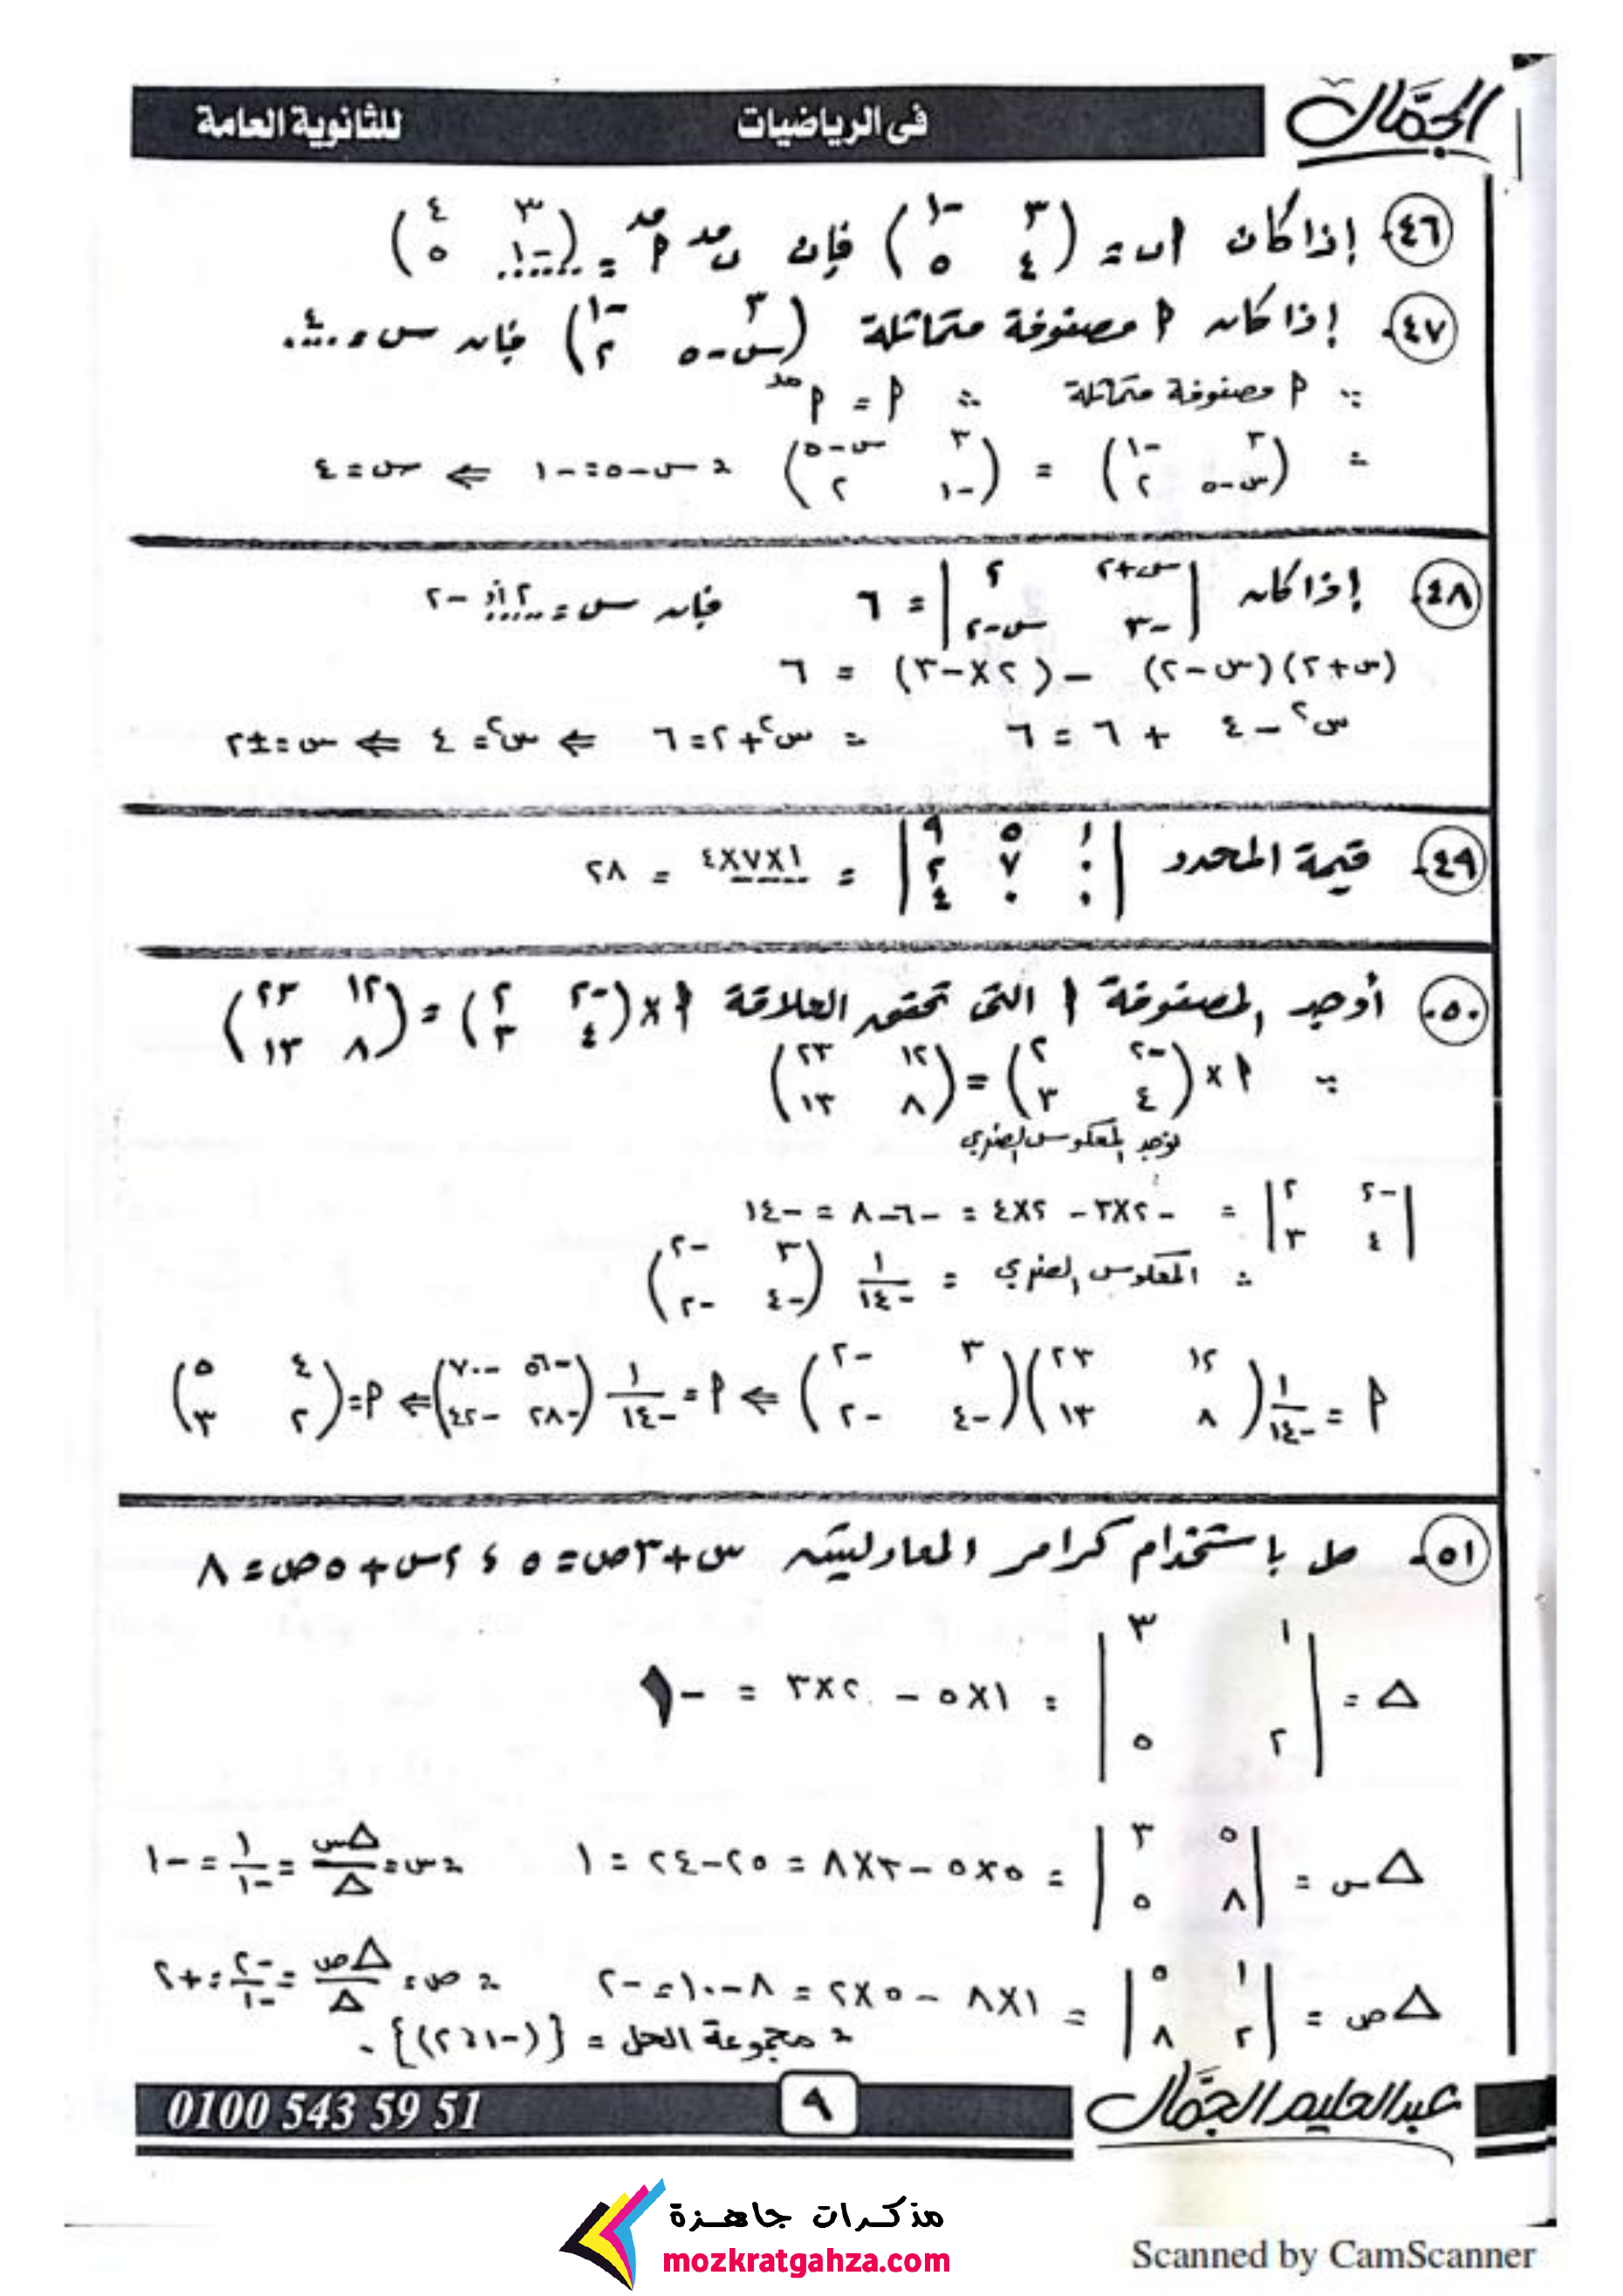 الجمال
فى الرياضيات
للثانوية العامة
٤٦- إذا كان أ ب = (٣ -١ ؛ ٤ ٥) فإن ب مد أ مد = (٣ ٤ ؛ -١ ٥)
٤٧- إذا كان أ مصفوفة متماثلة (٣ -١ ؛ س-٥ ٢) فإن س = ٤
∵ أ مصفوفة متماثلة ∴ أ = أ مد
∴ (٣ -١ ؛ س-٥ ٢) = (٣ س-٥ ؛ -١ ٢) ∴ س-٥=-١ ⇐ س=٤
٤٨- إذا كان |س+٢ ٢ ؛ -٣ س-٢| = ٦ فإن س = ٢ أو -٢
(س+٢)(س-٢) - (٢×-٣) = ٦
س٢ - ٤ + ٦ = ٦ ∴ س٢+٢=٦ ⇐ س٢=٤ ⇐ س=±٢
٤٩- قيمة المحدد |١ ٥ ٩ ؛ ٠ ٧ ٢ ؛ ٠ ٠ ٤| = ١×٧×٤ = ٢٨
٥٠- أوجد المصفوفة أ التى تحقق العلاقة أ × (-٢ ٢ ؛ ٤ ٣) = (١٢ ٢٣ ؛ ٨ ١٣)
∵ أ × (-٢ ٢ ؛ ٤ ٣) = (١٢ ٢٣ ؛ ٨ ١٣)
نوجد المعكوس الضربي
|-٢ ٢ ؛ ٤ ٣| = -٢×٣ - ٢×٤ = -٦-٨ = -١٤
∴ المعكوس الضربي = ١/-١٤ (٣ -٢ ؛ -٤ -٢)
أ = ١/-١٤ (١٢ ٢٣ ؛ ٨ ١٣)(٣ -٢ ؛ -٤ -٢) ⇐ أ = ١/-١٤ (-٥٦ -٧٠ ؛ -٢٨ -٤٢) ⇐ أ = (٤ ٥ ؛ ٢ ٣)
٥١- حل باستخدام كرامر المعادلتين س+٣ص=٥ ، ٢س+٥ص=٨
Δ = |١ ٣ ؛ ٢ ٥| = ١×٥ - ٢×٣ = -١
Δس = |٥ ٣ ؛ ٨ ٥| = ٥×٥-٣×٨ = ٢٥-٢٤ = ١ ∴ س = Δس/Δ = ١/-١ = -١
Δص = |١ ٥ ؛ ٢ ٨| = ١×٨ - ٥×٢ = ٨-١٠ = -٢ ∴ ص = Δص/Δ = -٢/-١ = +٢
∴ مجموعة الحل = {(-١ ، ٢)} .
عبدالحليم الجمال
٩
0100 543 59 51
مذكرات جاهزة
mozkratgahza.com
Scanned by CamScanner